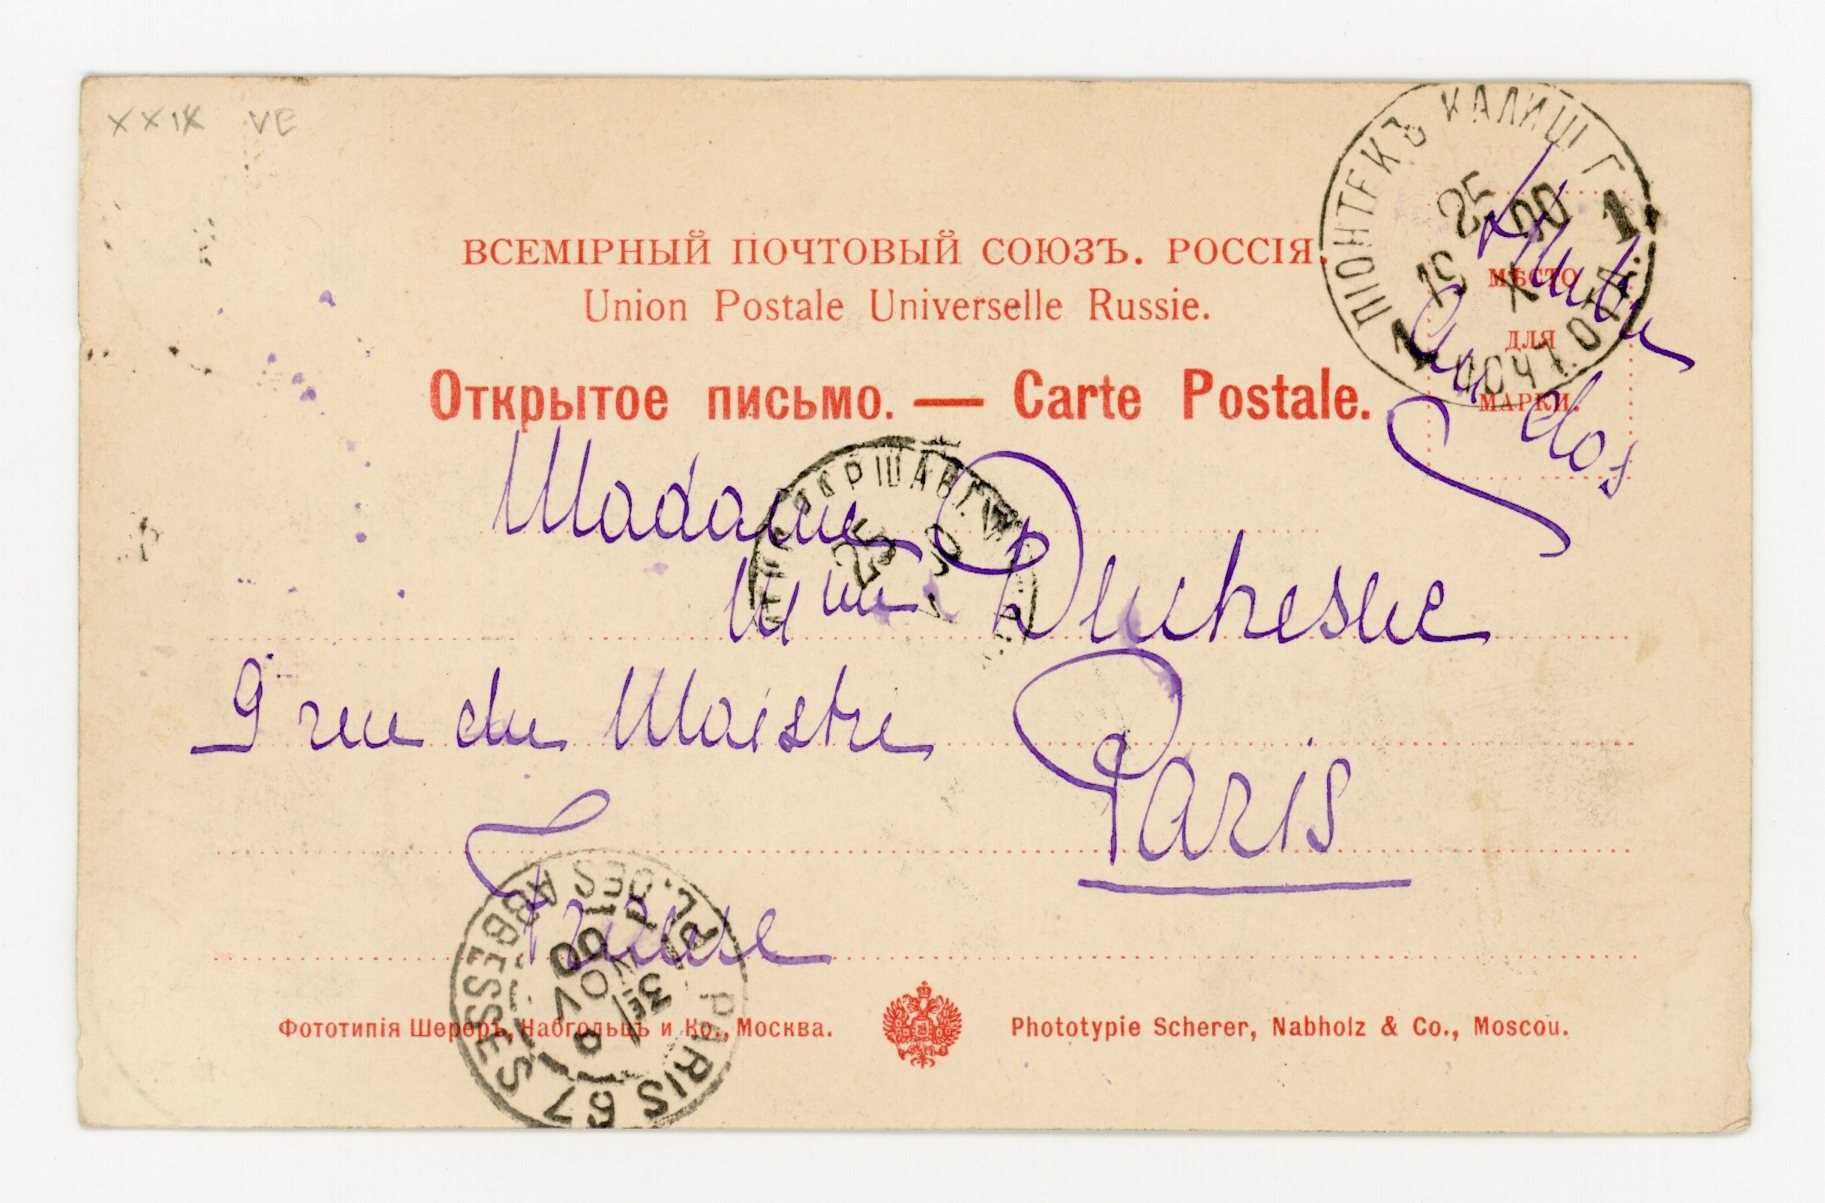 XXIX VE
ВСЕМІРНЫЙ ПОЧТОВЫЙ СОЮЗЪ. РОССІЯ.
Union Postale Universelle Russie.
Открытое письмо. — Carte Postale.
МѢСТО
ДЛЯ
МАРКИ.
ПІОНТЕКЪ КАЛИШ Г
1 ПОЧТ. ОТД. 1
25 X 1900
Timbre
au dos
ВАРШАВ
25
Madame
Duchesne
9 rue du Maistre
Paris
France
PARIS 67 PL. DES ABBESSES
3E
NOV
00
Фототипія Шереръ, Набгольцъ и Ко., Москва.
Phototypie Scherer, Nabholz & Co., Moscou.